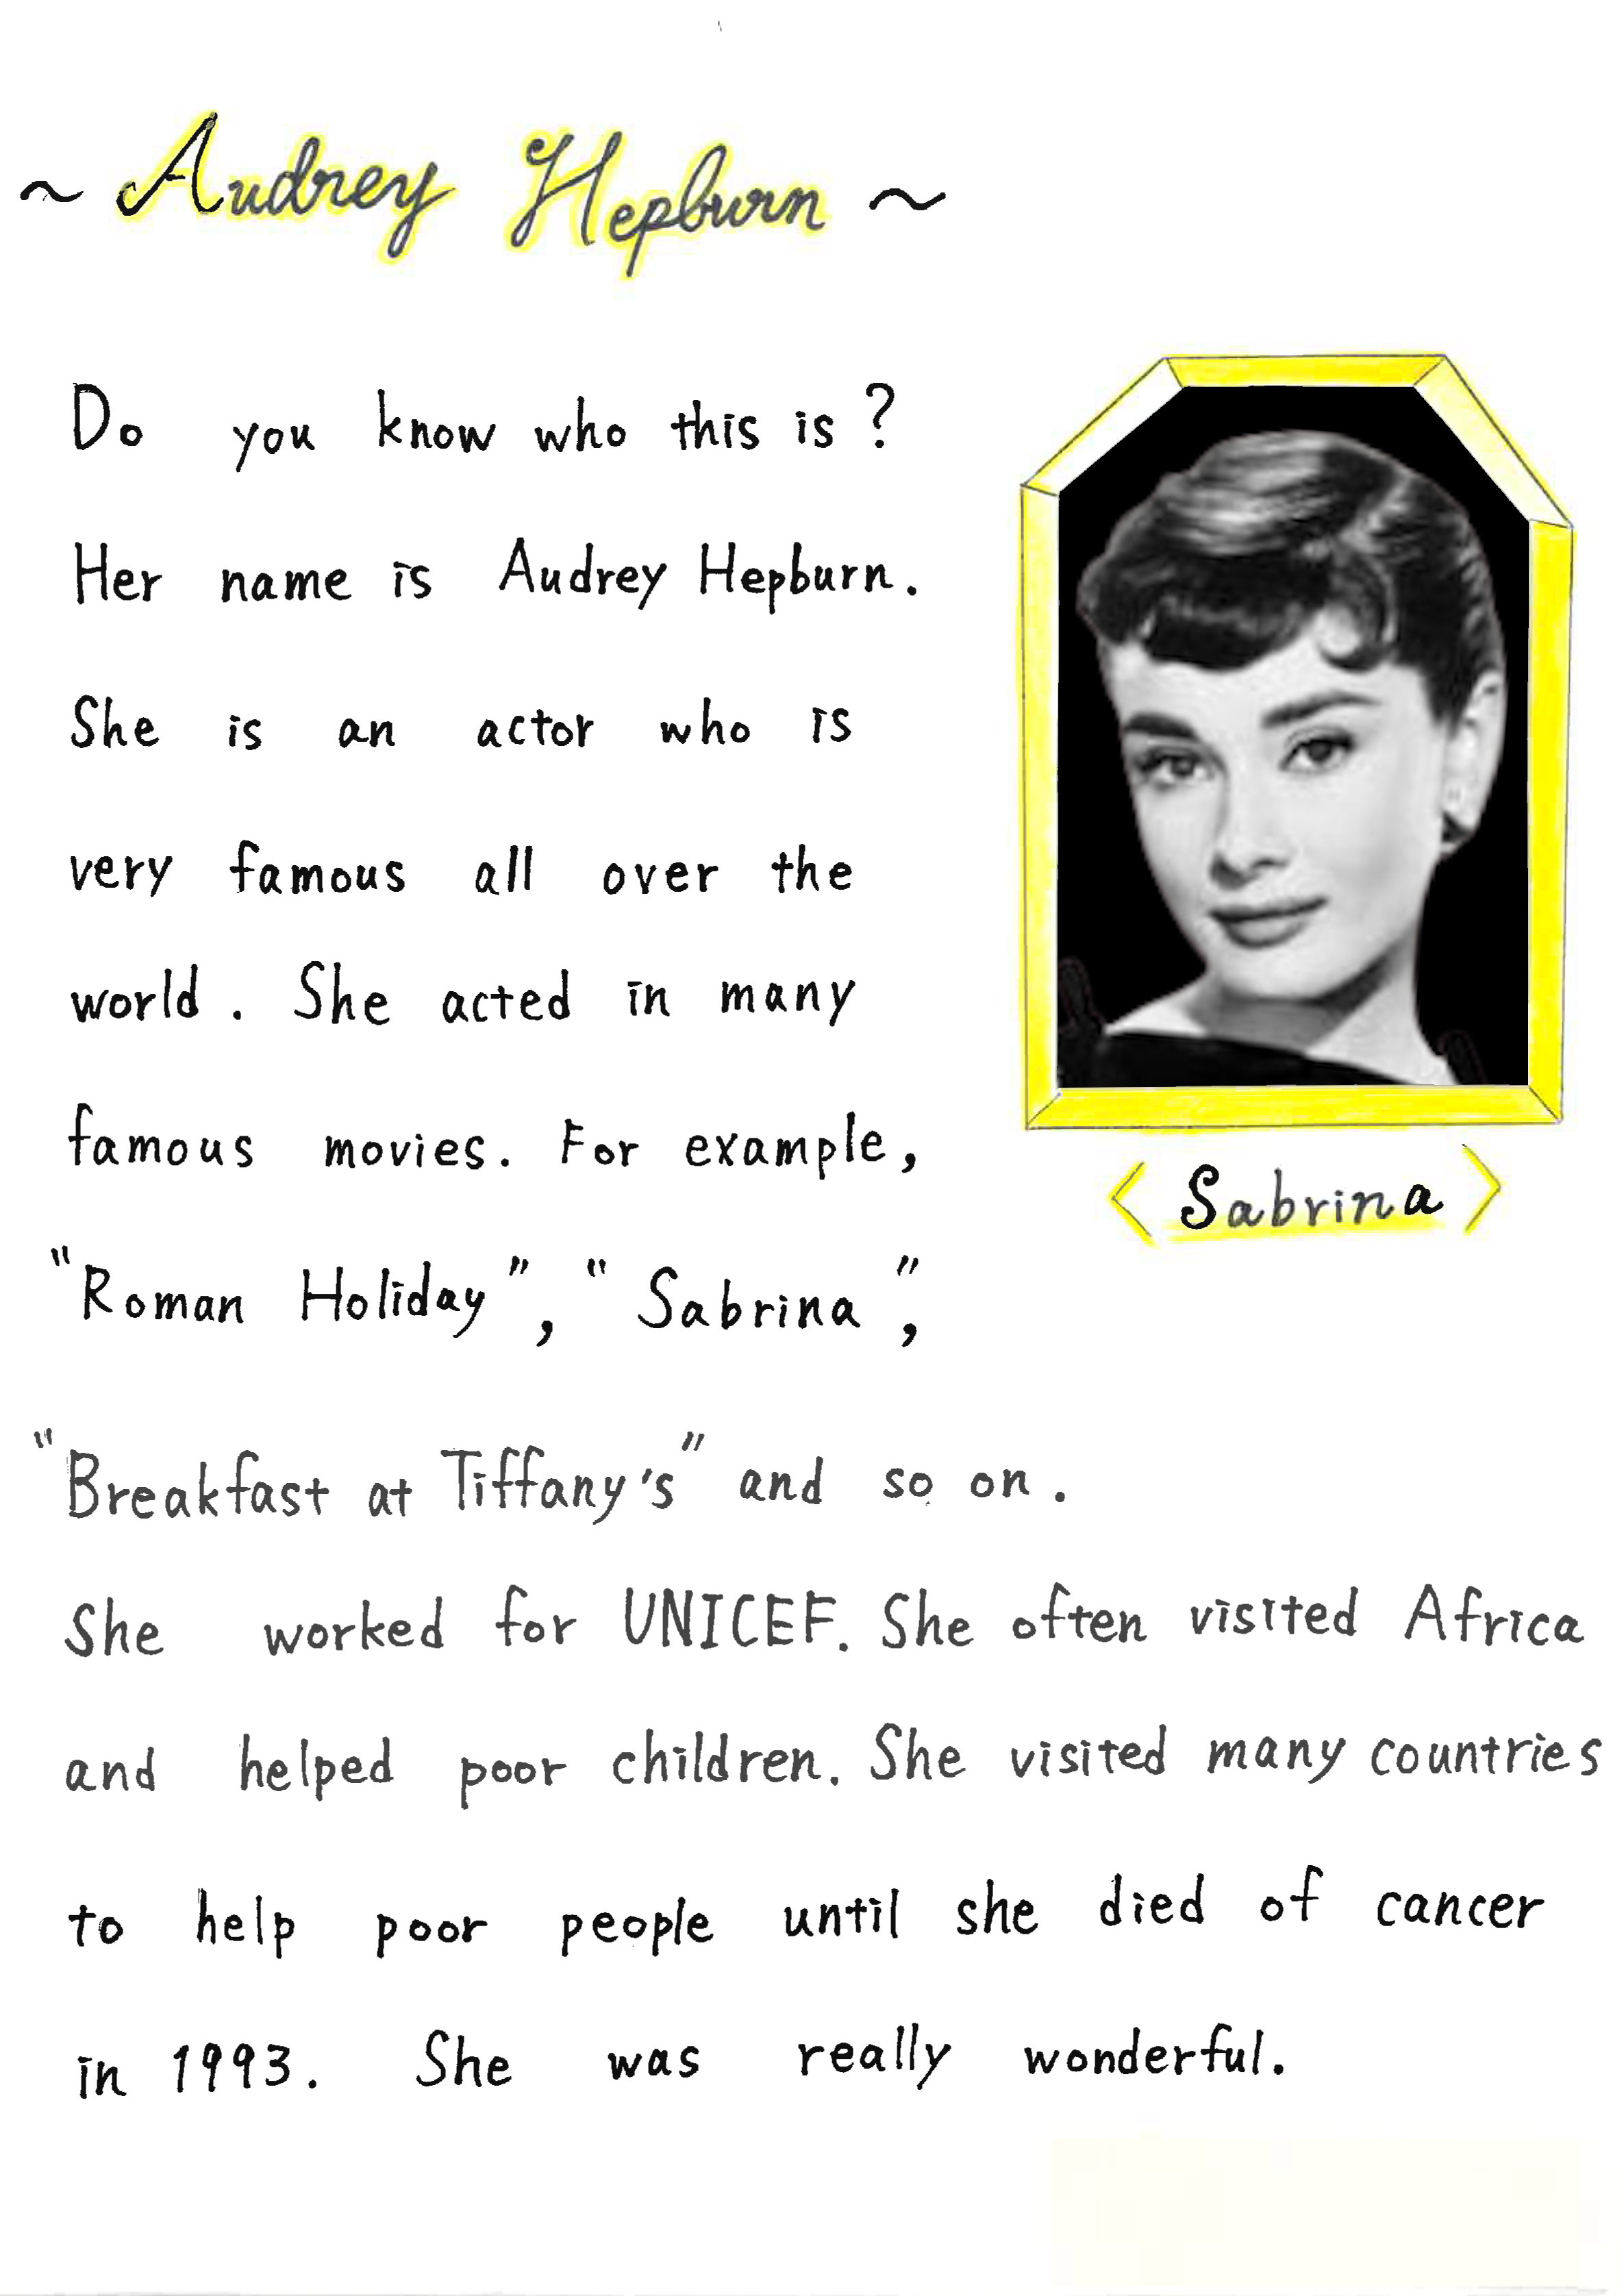 ~ Audrey Hepburn ~
Do you know who this is?
Her name is Audrey Hepburn.
She is an actor who is
very famous all over the
world. She acted in many
famous movies. For example,
"Roman Holiday", "Sabrina",
"Breakfast at Tiffany's" and so on.
She worked for UNICEF. She often visited Africa
and helped poor children. She visited many countries
to help poor people until she died of cancer
in 1993. She was really wonderful.
< Sabrina >